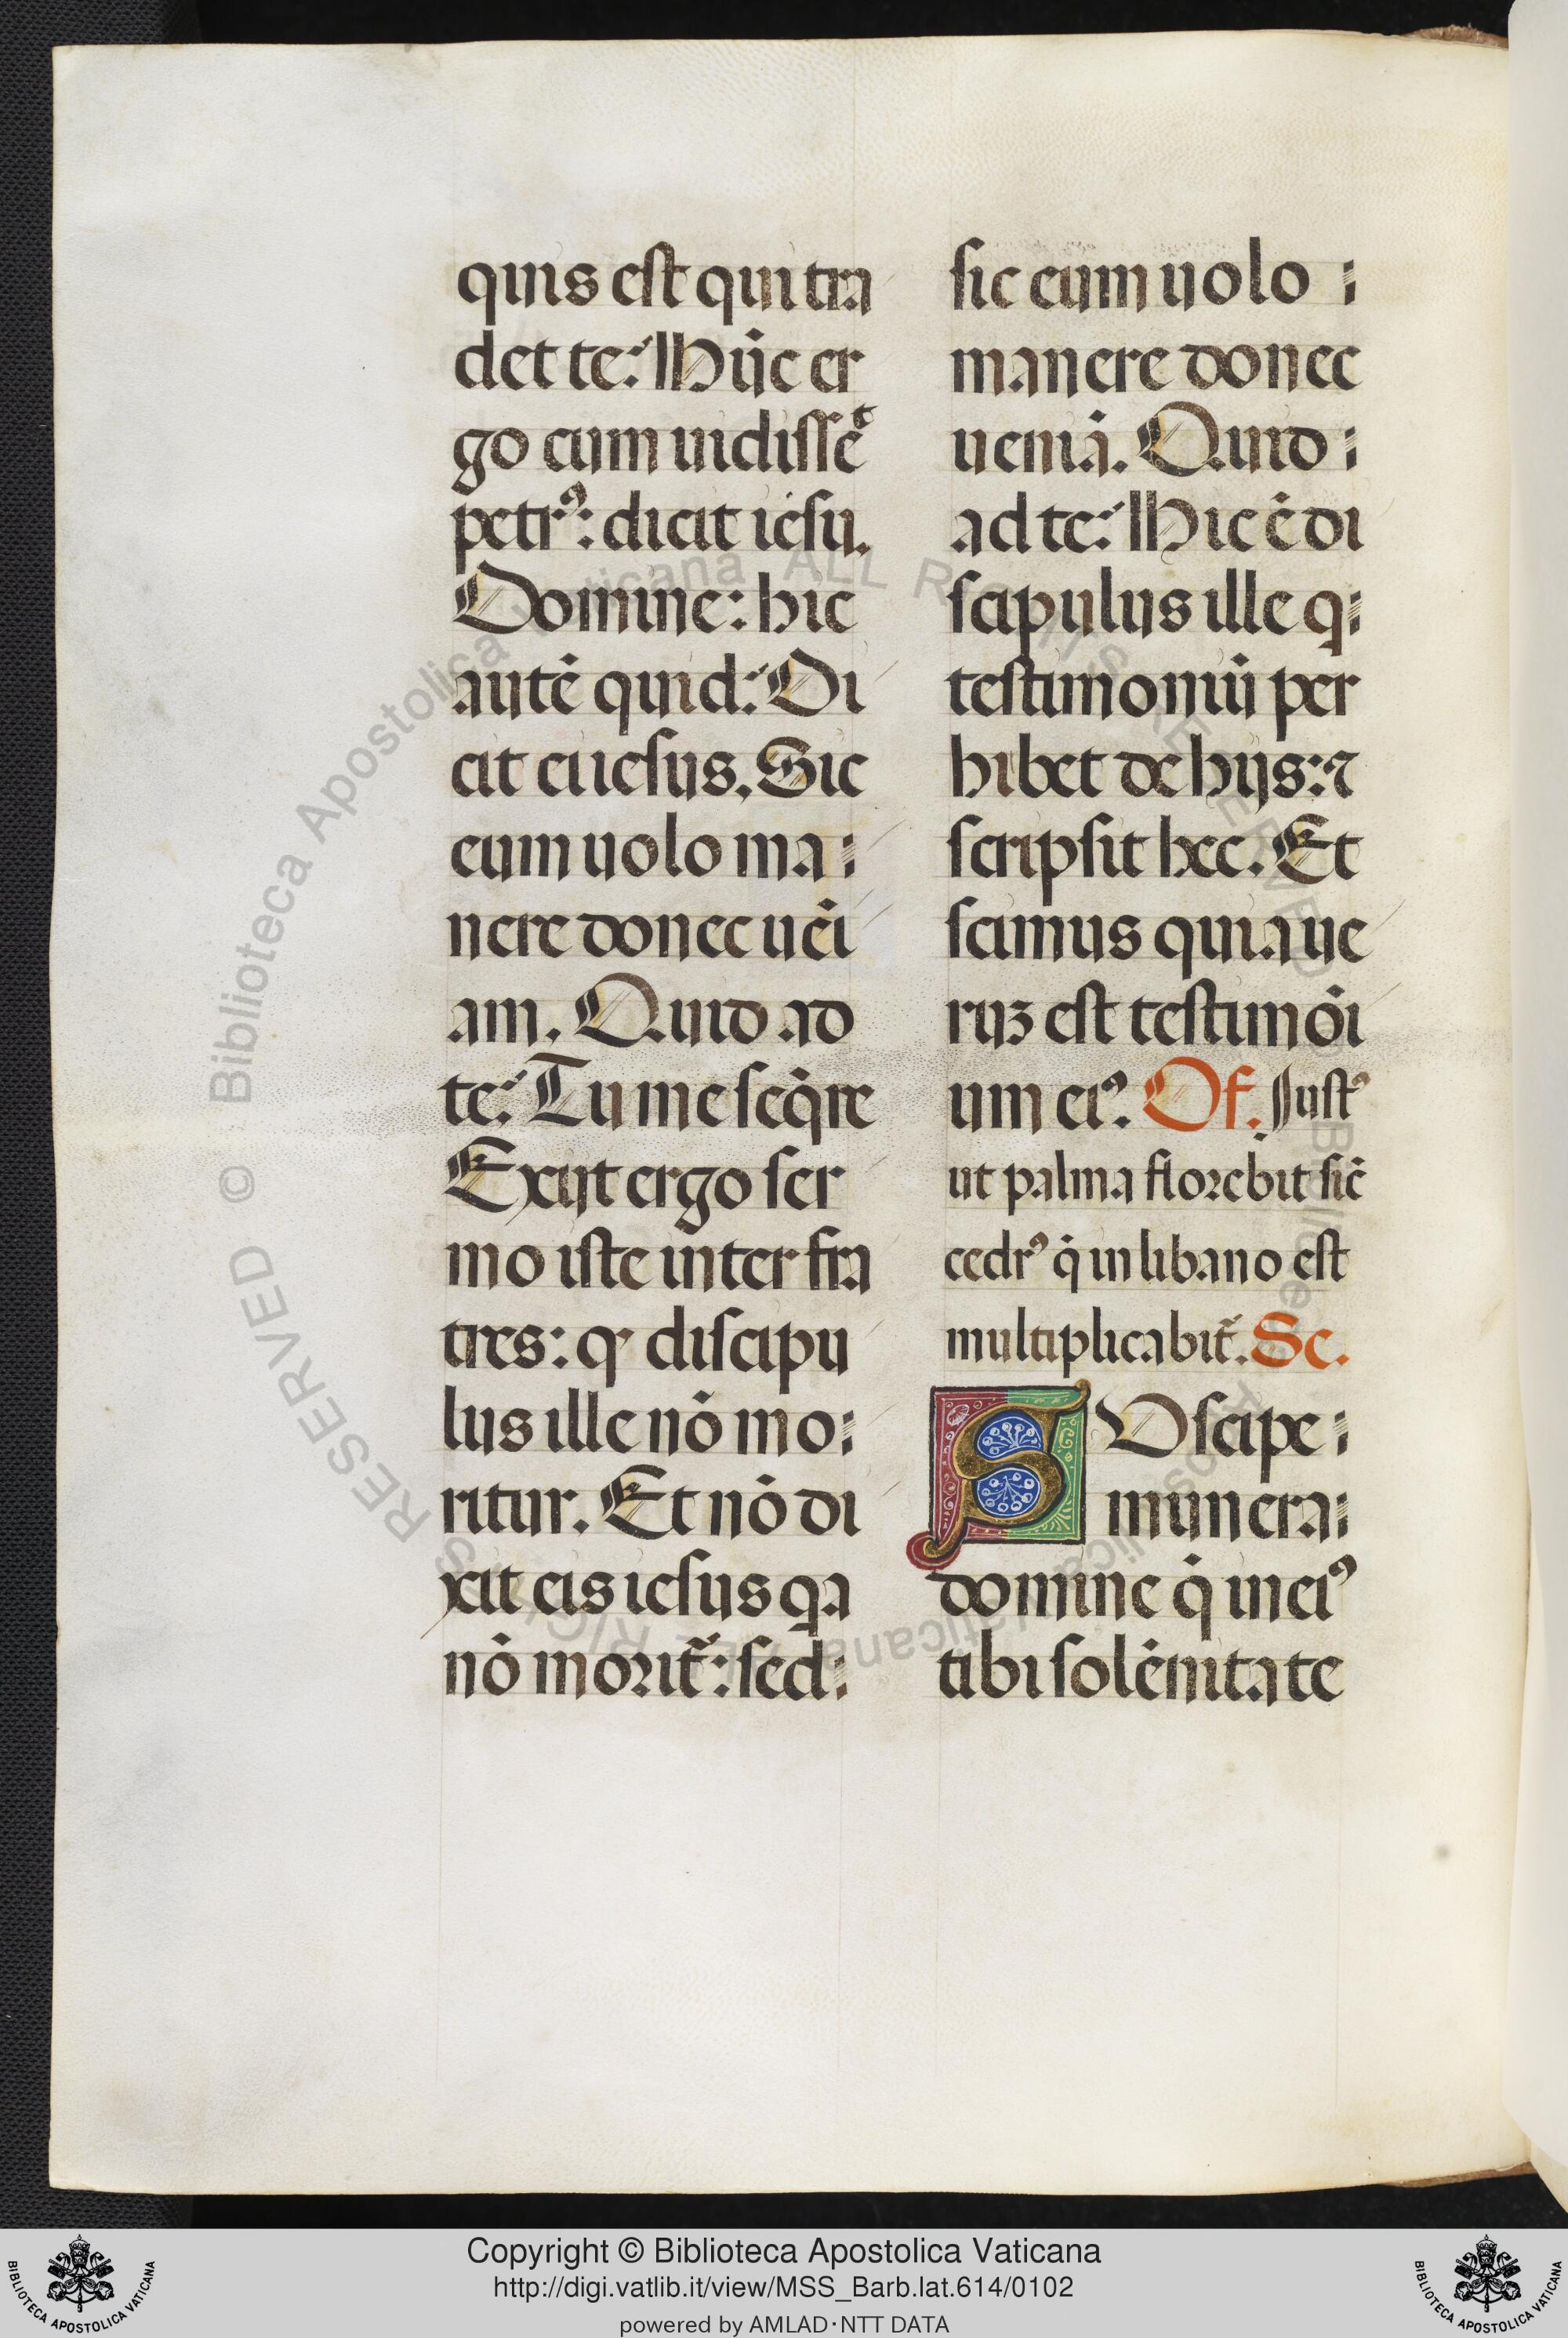 quis est qui tra
det te? Hūc er
go cum uidissēt
petrꝰ: dicit iesu.
Domine: hic
autē quid? Di
cit ei iesus. Sic
eum uolo ma
nere donec uēi
am. Quid ad
te? Tu me seq̄re
Exijt ergo ser
mo iste inter fra
tres: qͥ discipu
lus ille nō mo
ritur. Et nō di
xit eis iesus qa
nō morit᷑: sed
sic eum uolo
manere donec
ueniā. Quid
ad te? Hic ē di
scipulus ille q
testimoniū per
hibet de hijs: ⁊
scripsit hec. Et
scimus quia ue
ruꝫ est testimōi
um eiꝰ. Of. Justꝰ
ut palma florebit sic̄
cedrꝰ q̄ in libano est
multiplicabit᷑. Sc.
SUscipe
munera
domine q̄ in eiꝰ
tibi solēnitate
© Biblioteca Apostolica Vaticana ALL RIGHTS RESERVED
Copyright © Biblioteca Apostolica Vaticana
http://digi.vatlib.it/view/MSS_Barb.lat.614/0102
powered by AMLAD·NTT DATA
BIBLIOTECA APOSTOLICA VATICANA
BIBLIOTECA APOSTOLICA VATICANA